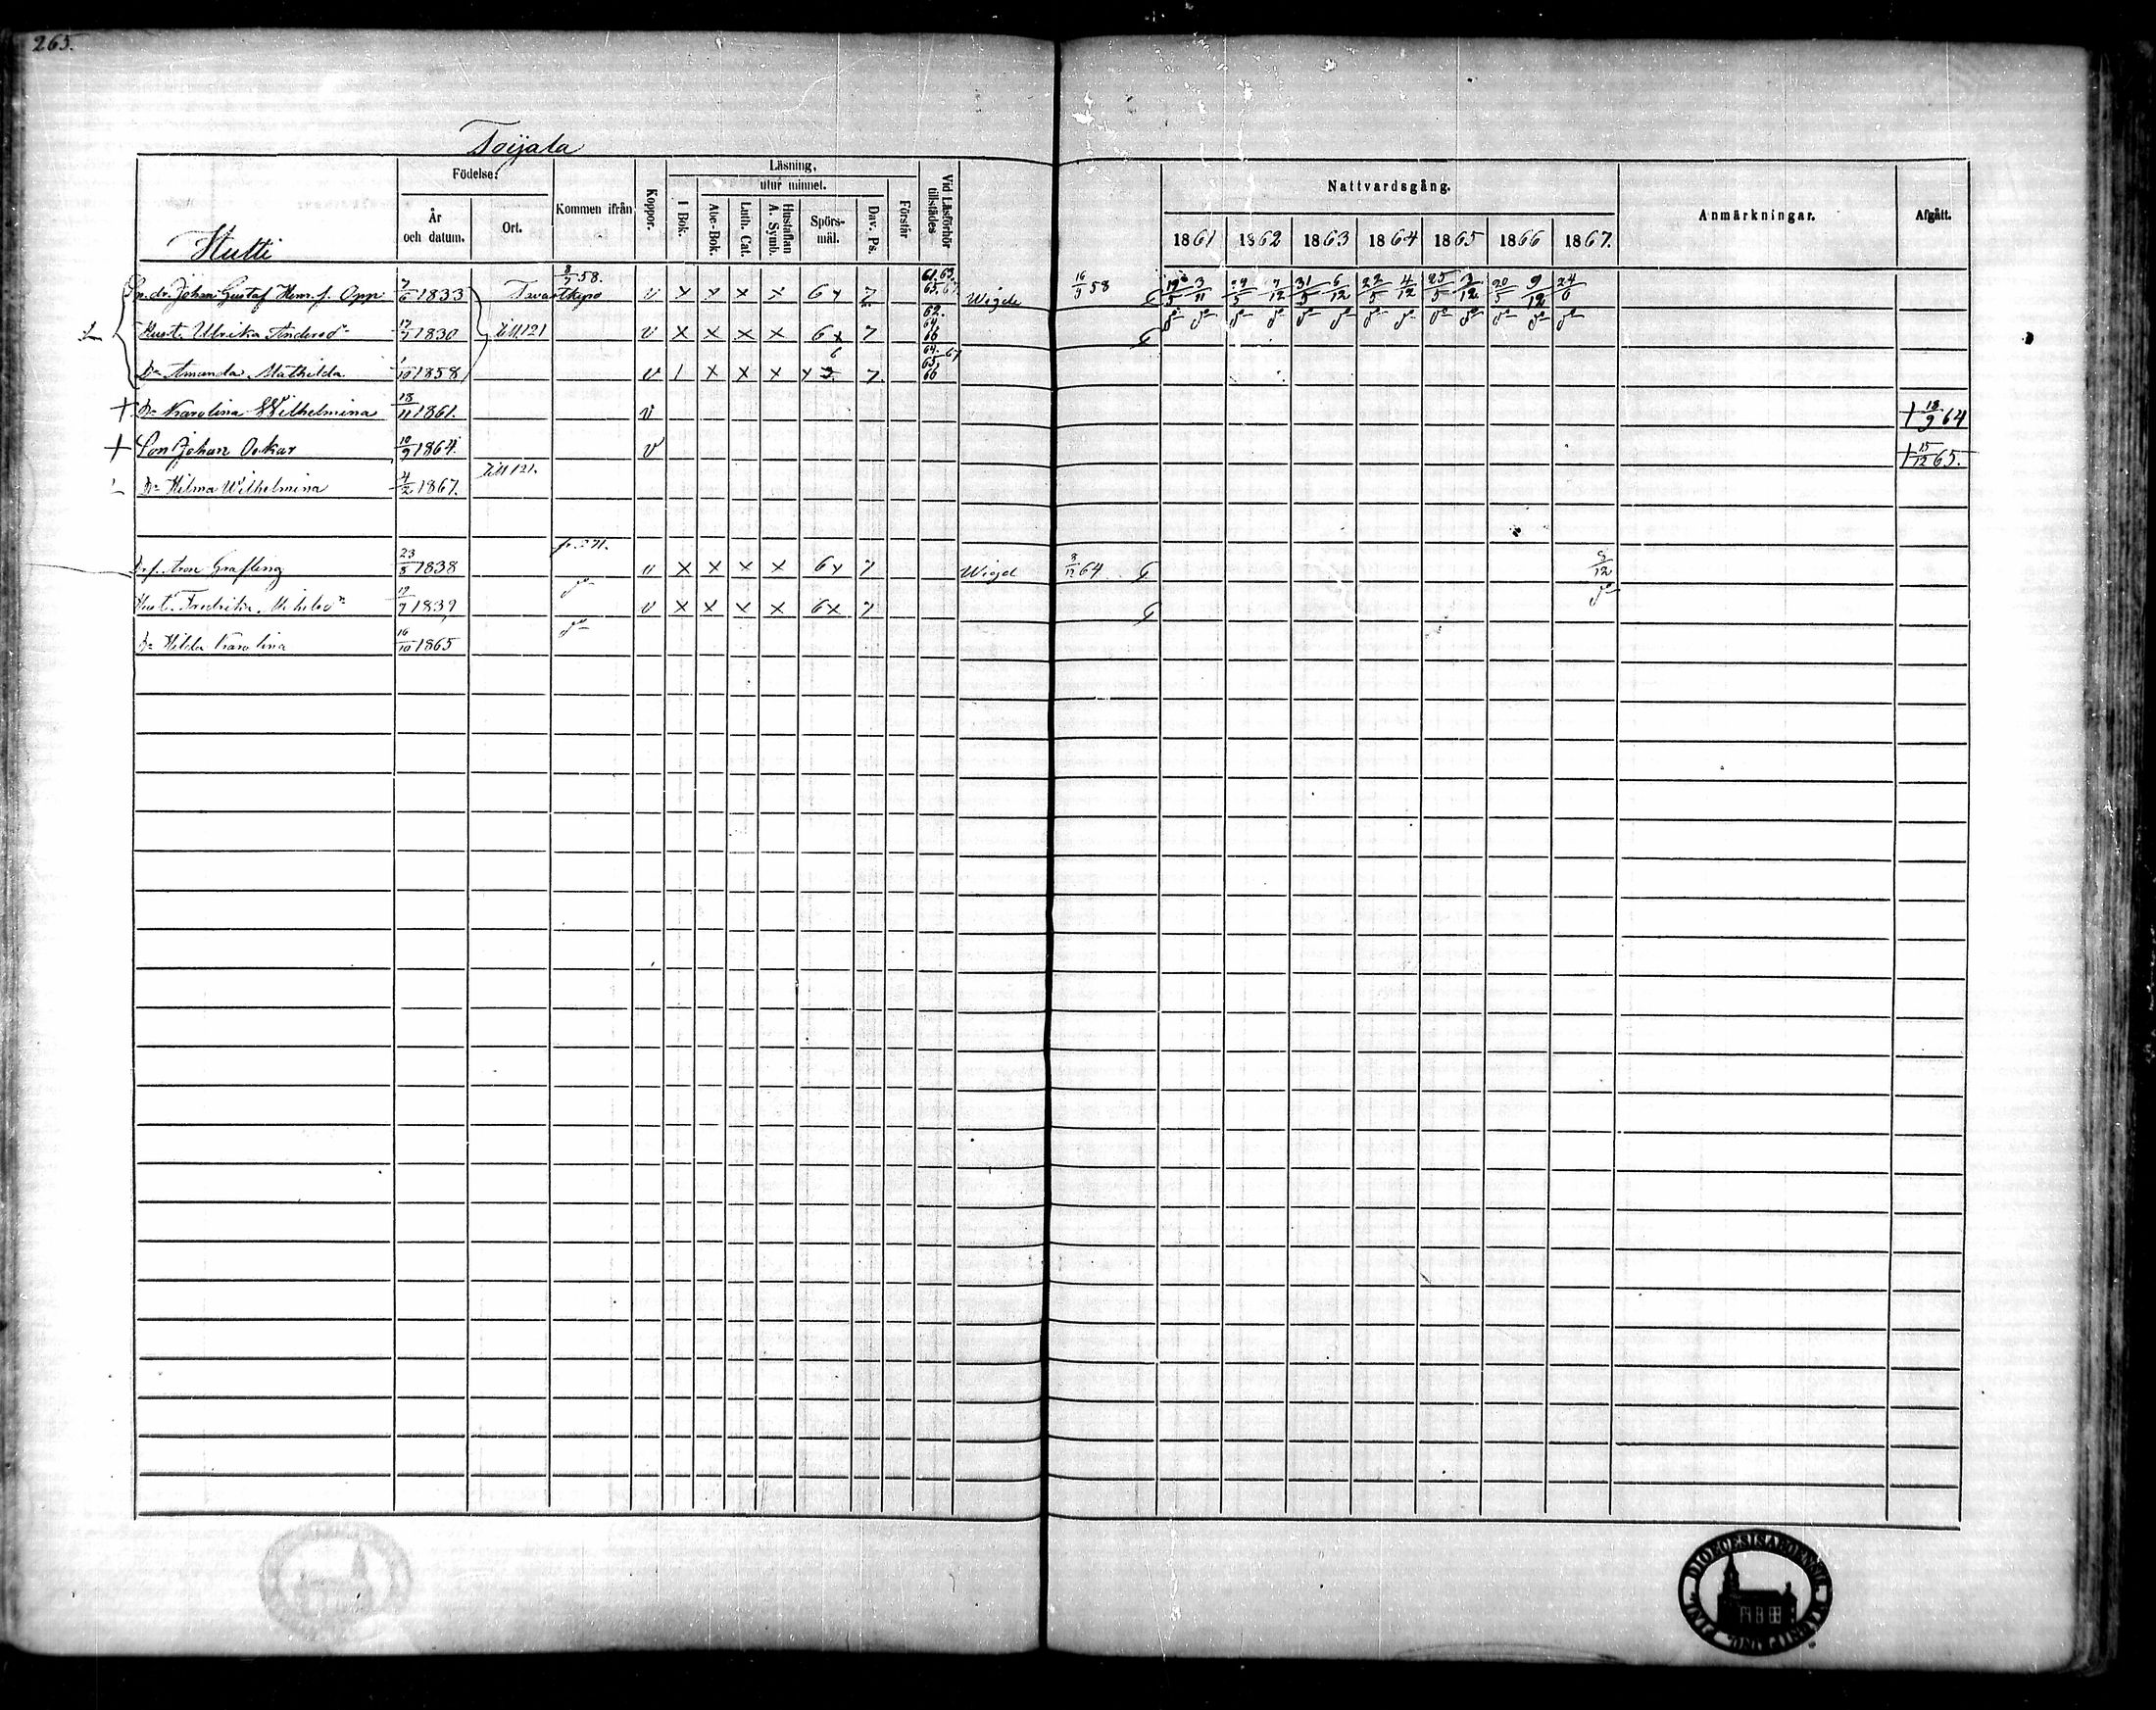 265.
Toijala
Hutti
Födelse:
År och datum.
Ort.
Kommen ifrån
Koppor.
Läsning,
I Bok.
utur minnet.
Abc-Bok.
Luth. Cat.
Hustaflan A. Symb.
Spörs-mål.
Dav. Ps.
Förstår
Vid Läsförhör tillstädes
Nattvardsgång.
1861 1862 1863 1864 1865 1866 1867.
Anmärkningar.
Afgått.
Johan Gustaf Henr. f. Opp 7/6 1833 8/7 58. v x x x x 6 x 7 61. 63. 65. 67. Wigde 16/9 58 3/11 7/12 31/5 6/12 22/5 4/12 25/5 3/12 20/5 9/12 24/6
Hust. Ulrika Andersdr 17/7 1830 Till 121 v x x x x 6 x 7 62. 64. 66
Dr Amanda Mathilda 1/10 1858 v 1 x x x x 7 64. 67 65. 66
+ Dr Karolina Wilhelmina 18/11 1861. v + 18/9 64
+ Son Johan Oskar 10/9 1864. v + 15/12 65.
Dr Hilma Wilhelmina 4/2 1867. Till 121.
Grefling 23/8 1838 fr. 271. v x x x x 6 x 7 Wigd 8/12 64 8/12
Hust. Fredrika 19/7 1839 do v x x x x 6 x 7
Dr Hilda Karolina 16/10 1865 do
DIOECESIS ABOENSIS